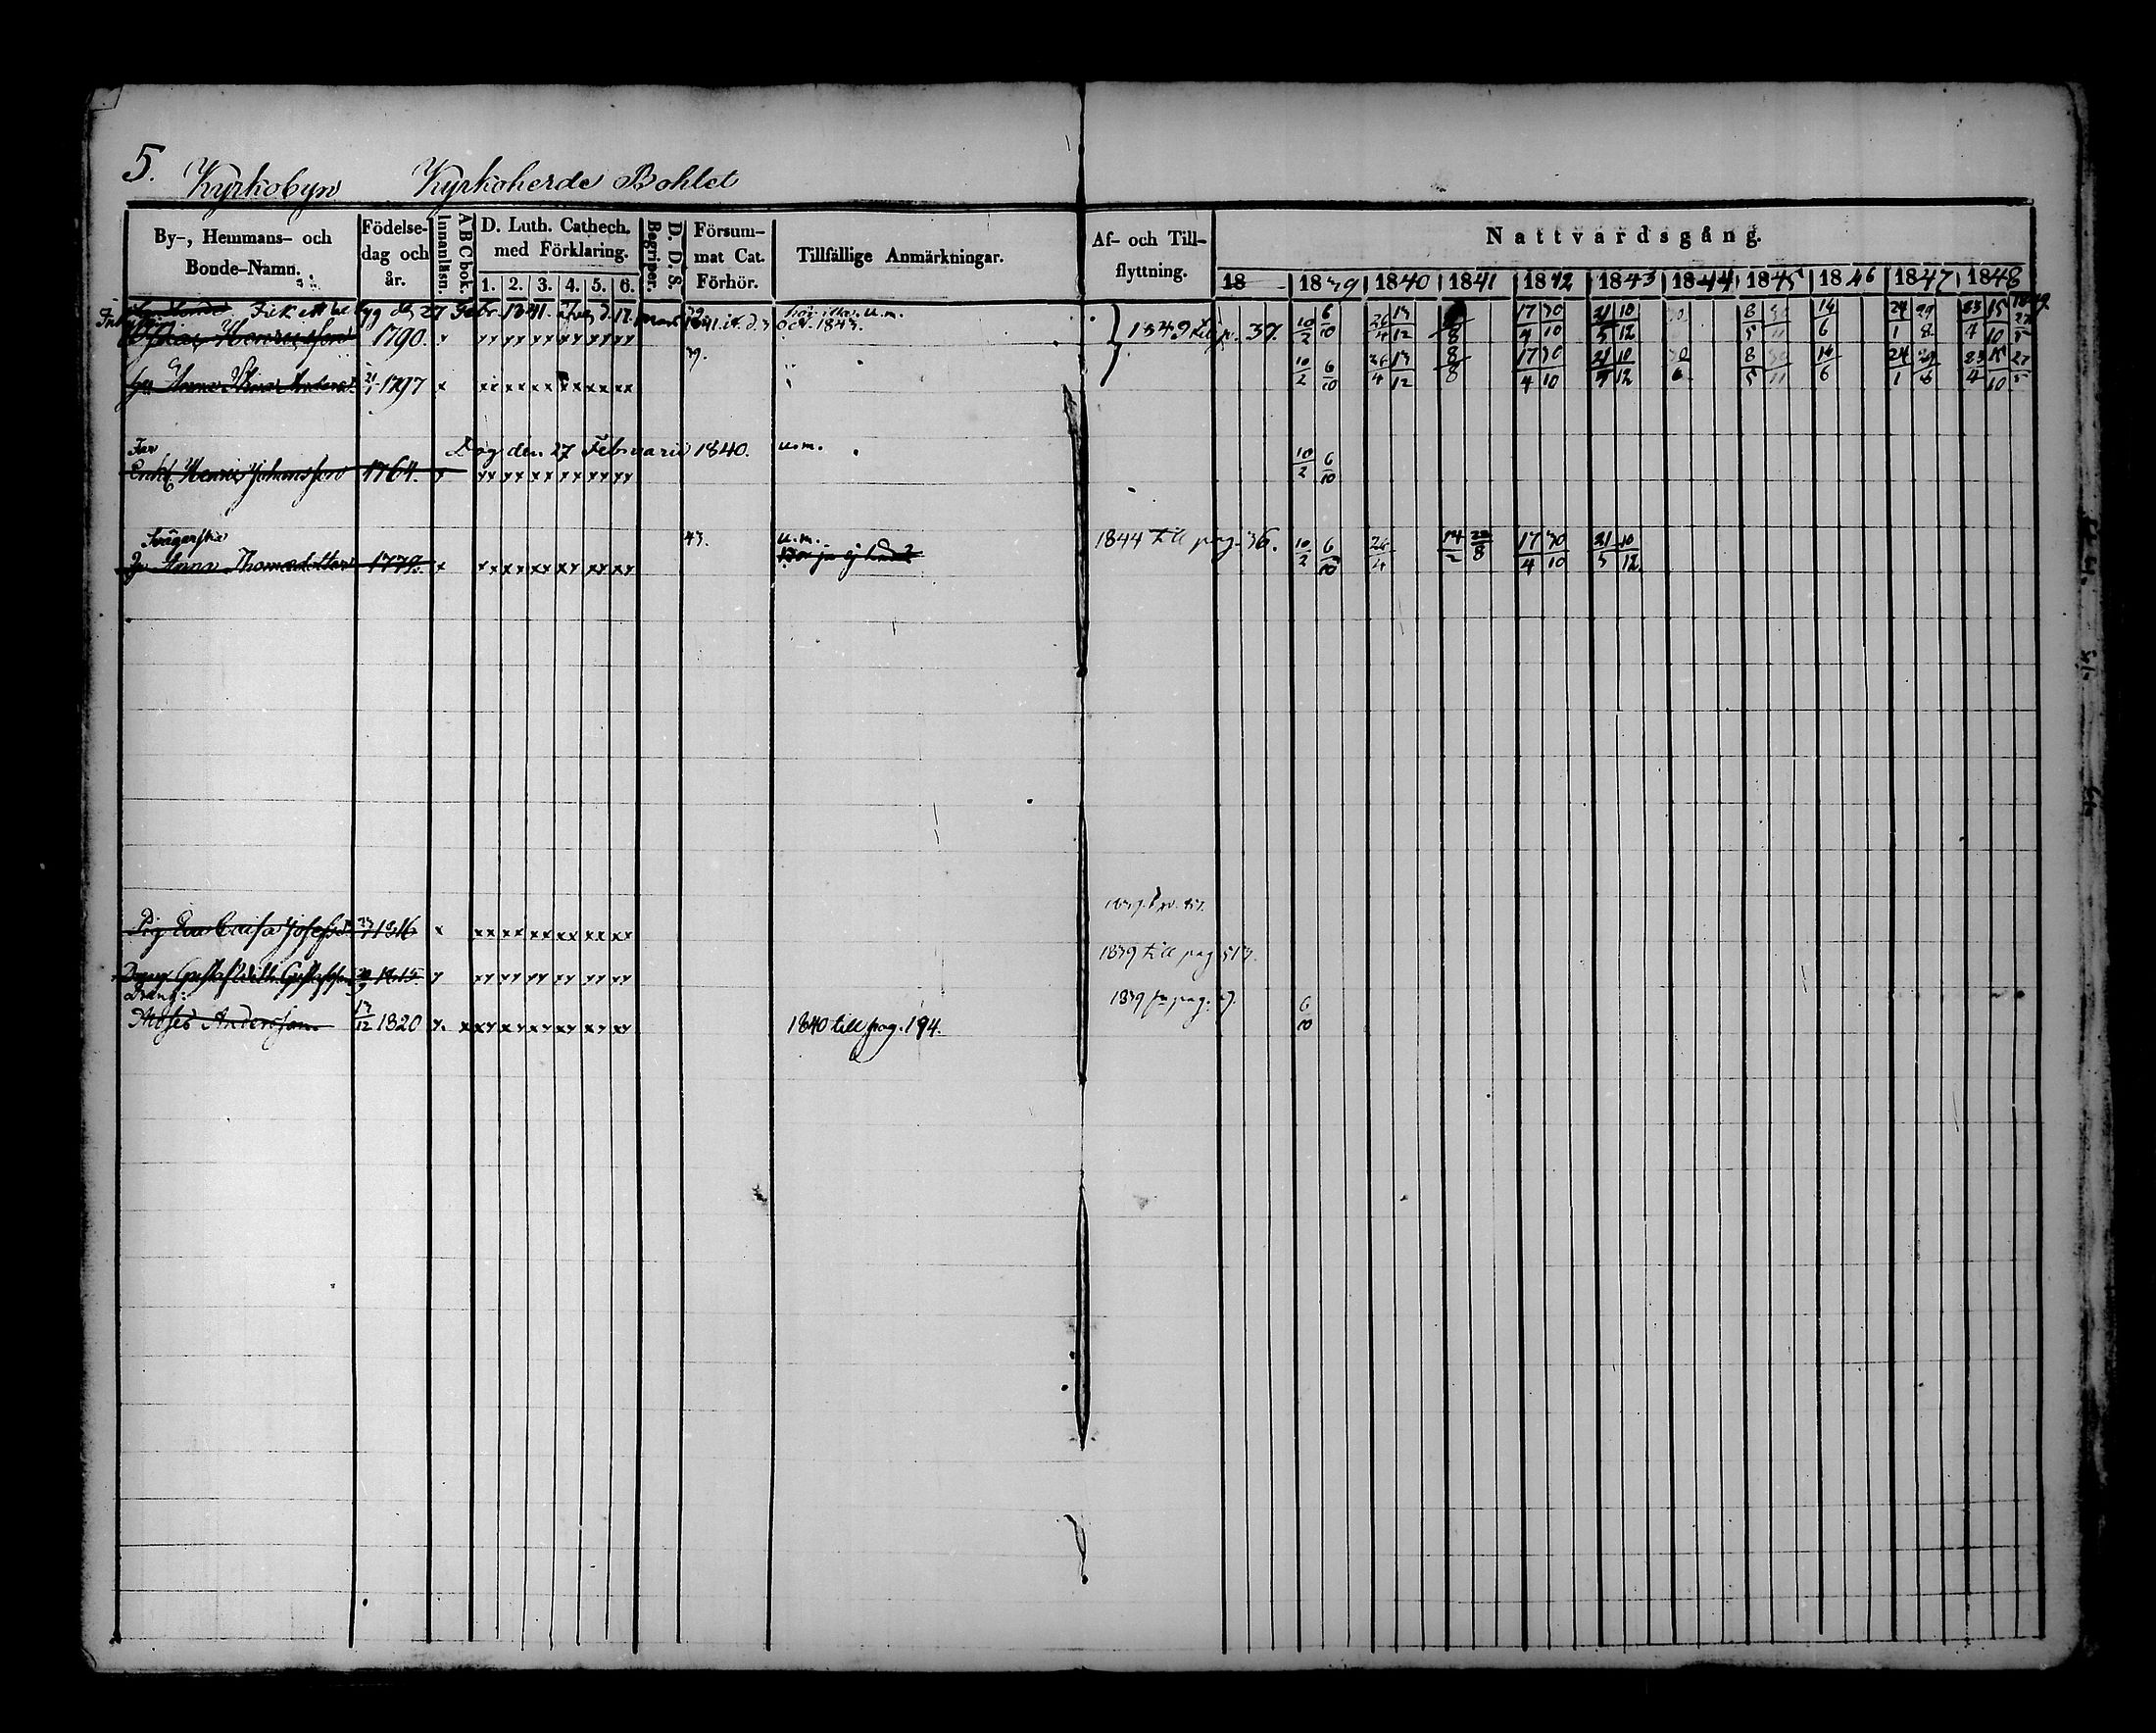 5. Kyrkobyn Kyrkoherde Bohlet
By-, Hemmans- och Bonde-Namn.
Födelse-dag och år.
Innanläsn.
A B C bok.
D. Luth. Cathech. med Förklaring.
1. 2. 3. 4. 5. 6.
Begriper.
D. D. S.
Försum-mat Cat. Förhör.
Tillfällige Anmärkningar.
Af- och Till-flyttning.
Nattvardsgång.
18 1839 1840 1841 1842 1843 1844 1845 1846 1847 1848 1849
Fick
27 Febr. 1841
Henricsson 1790. x xx xx xx xx xx xx oct. 1843. 1849 till p. 37. 10/2 6/10 26/4 13/12 8 17/4 30/10 21/5 10/12 8/5 14/6 24/1 29/8 23/4 15/10 27/5
Hu Anna 1797 x xx xx xx xx xx xx 39. 10/2 6/10 26/4 13/12 8/8 17/4 30/10 21/5 10/12 20/6 8/5 30/11 14/6 24/1 29/8 23/4 15/10 27/5
Far Dog den 27 Februarii 1840. u.m.
Enkl. Henric Johansson 1764. x xx xx xx xx xx xx 10/2 6/10
Svägerska 43. u.m. 1844 till pag. 36. 10/2 6/10 26/4 14/2 22/8 17/4 30/10 21/5 10/12
Anna Thomasdotter 1779. x xx xx xx xx xx xx
Pig Eva Caisa Josefsd. 1816 x xx xx xx xx xx xx
1839 till pag 513.
Dreng Gustaf Wilh. Gustafsson 1815 x xx xx xx xx xx xx
Dräng: 1839 fr pag. 6/10
Moses Andersson 17/12 1820 x. x xx xx xx xx xx xx 1840 till pag. 194.